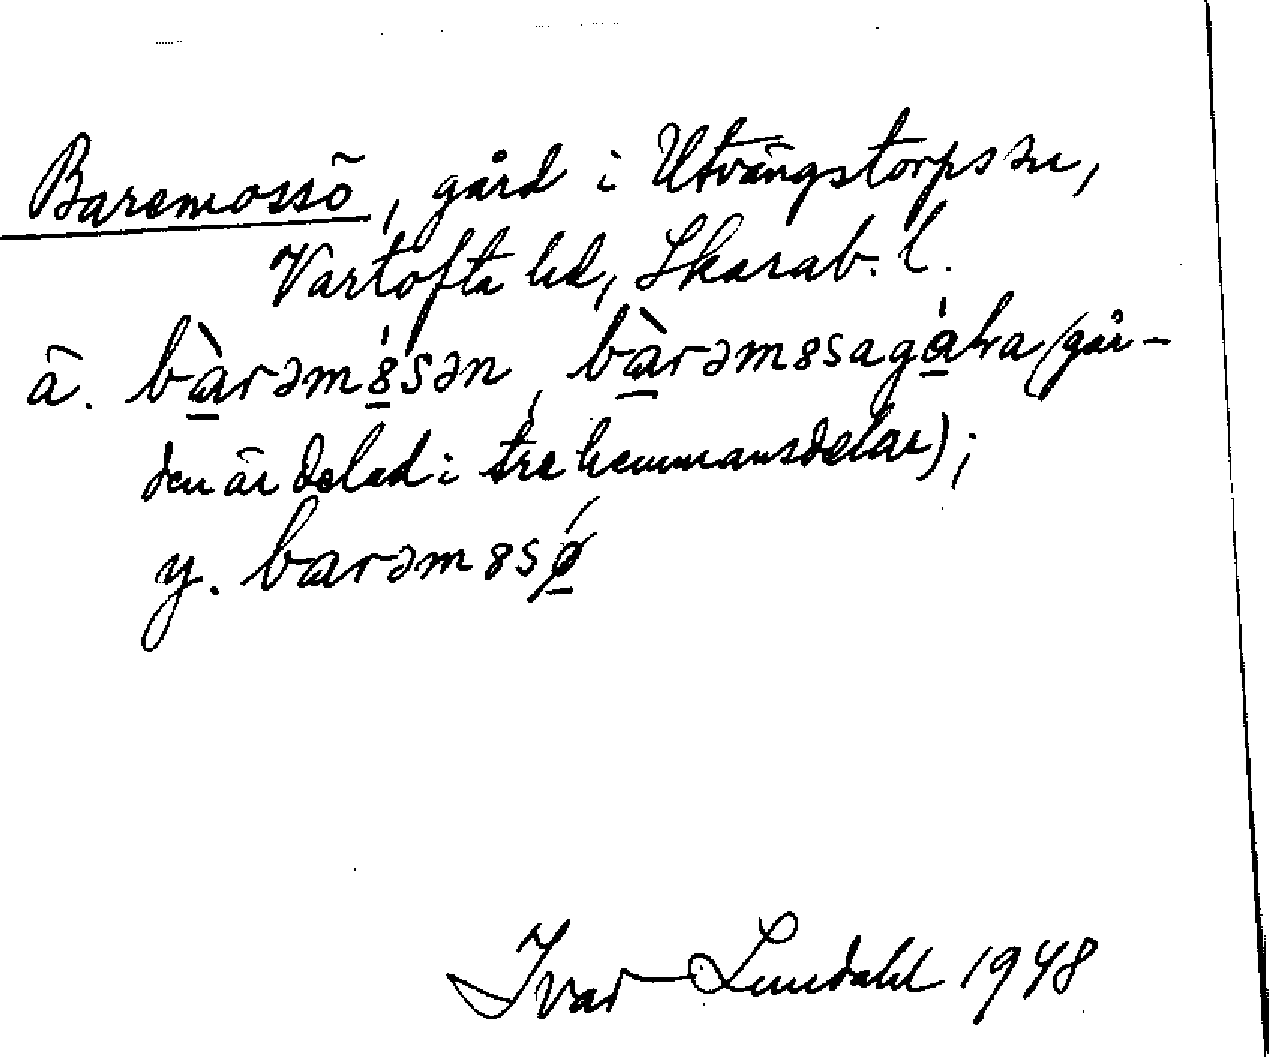 Baremossö, gård i Utvängstorps sn,
Vartofta hd, Skarab. l.
ä. bàrəm8́sən, bàrəm8sagáɫra (går-
den är delad i tre hemmansdelar);
y. barəm8sǿ
Ivar Lundahl 1948